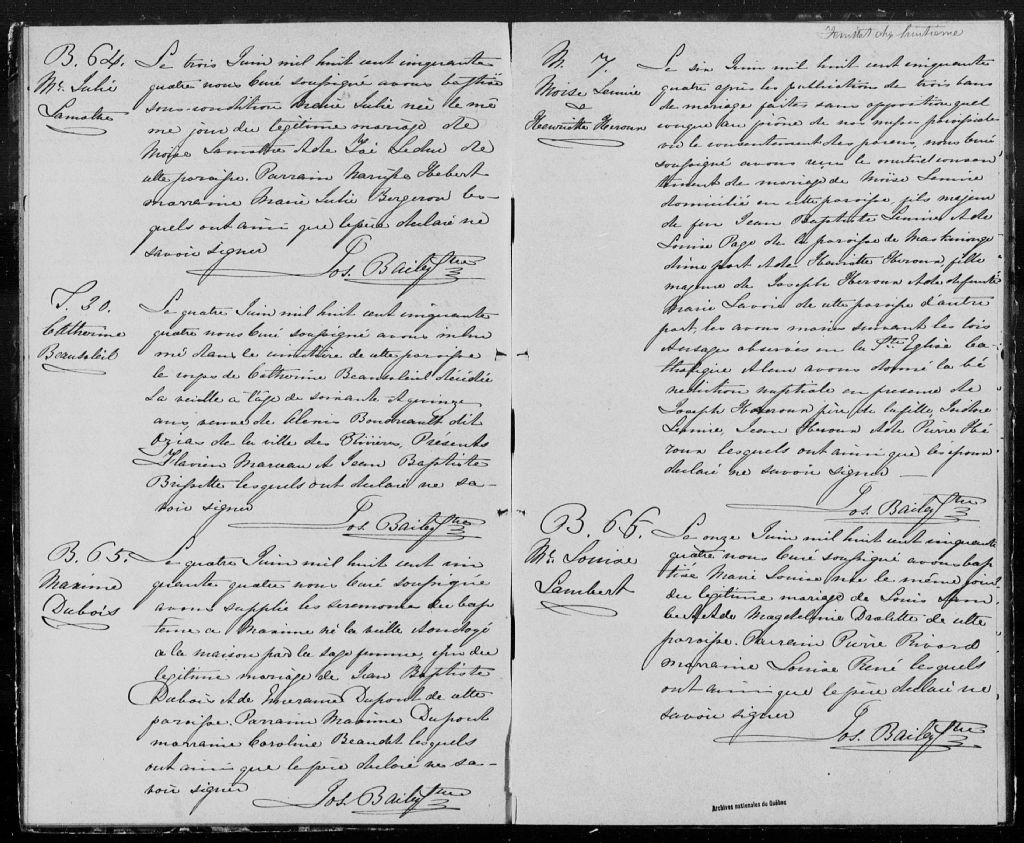 B. 64.
Me. Julie
Lamothe
Le trois Juin mil huit cent cinquante
quatre nous Curé soussigné avons baptisé
sous condition Marie Julie née le mê
me jour du légitime mariage de
Moïse Lamothe & de Zoé Leduc de
cette paroisse. Parrain Narcisse Hebert
marraine Marie Julie Bergeron les-
quels ont ainsi que le père déclaré ne
savoir signer
Jos. Bailey Ptre
S. 30.
Catherine
Beausoleil
Le quatre Juin mil huit cent cinquante
quatre nous Curé soussigné avons inhu
mé dans le cimitière de cette paroisse
le corps de Catherine Beausoleil décédée
la veille a l'âge de soixante & quinze
ans, veuve de Alexis Boudreault dit
de la ville des Rivières, Présents
Flavien Marceau & Jean Baptiste
Brissette lesquels ont déclaré ne sa-
voir signer
Jos. Bailey Ptre
B. 65.
Maxime
Dubois
Le quatre Juin mil huit cent cin
quante quatre nous Curé soussigné
avons supplié les ceremonies du bap
teme a Maxime né la veille & ondoyé
a la maison par la sage femme, issu du
légitime mariage de Jean Baptiste
Dubois & de Emerame Dupont de cette
paroisse. Parrain Maxime Dupont
marraine Caroline Beaudet lesquels
ont ainsi que le père déclaré ne sa-
voir signer
Jos. Bailey Ptre
Feuillet dix huitième
M. 7.
Moïse Lemire
&
Henriette Heroux
Le six Juin mil huit cent cinquante
quatre après les publications de trois bans
de mariage faites sans opposition quel
conque au prône de nos messes paroissiales
vu le consentement des parens, nous Curé
soussigné avons reçu le mutuel consen
tement de mariage de Moïse Lemire
domicilié en cette paroisse, fils majeur
de feu Jean Baptiste Lemire & de
Louise Page de la paroisse de Maskinongé
d'une part & de Henriette Heroux fille
majeure de Joseph Heroux & de defunte
Marie Lavoie de cette paroisse d'autre
part, les avons mariés suivant les lois
& usages observés en la Ste Eglise Ca-
tholique & leur avons donné la bé
nédiction nuptiale en presence de
Joseph Heroux père de la fille, Isidore
Lemire, Jean Heroux & de Pierre Hé
roux lesquels ont ainsi que les époux
déclaré ne savoir signer
Jos. Bailey Ptre
B. 66.
Me. Louise
Lambert
Le onze Juin mil huit cent cinquante
quatre nous Curé soussigné avons bap
tisé Marie Louise née le même jour
du légitime mariage de Louis Lam
bert & de Magdeleine Drolette de cette
paroisse. Parrain Pierre Rivard
marraine Louise René lesquels
ont ainsi que le père déclaré ne
savoir signer
Jos. Bailey Ptre
Archives nationales du Québec